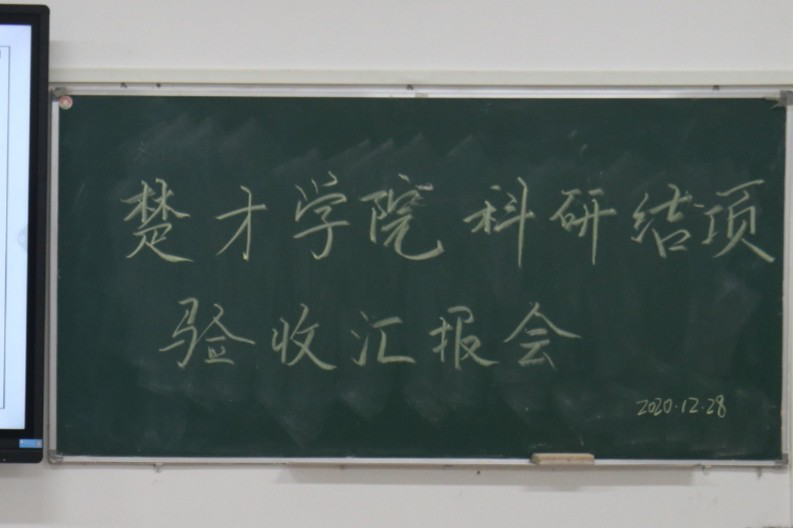 楚才学院科研结项
验收汇报会
2020.12.28